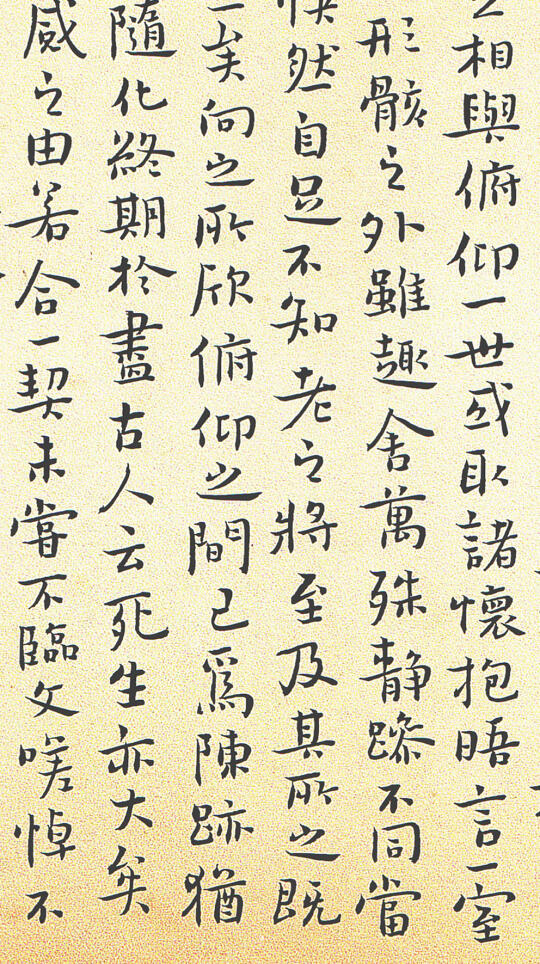 之相與俯仰一世或取諸懷抱晤言一室
形骸之外雖趣舍萬殊靜躁不同當
快然自足不知老之將至及其所之既
矣向之所欣俯仰之間已為陳跡猶
隨化終期於盡古人云死生亦大矣
感之由若合一契未嘗不臨文嗟悼不